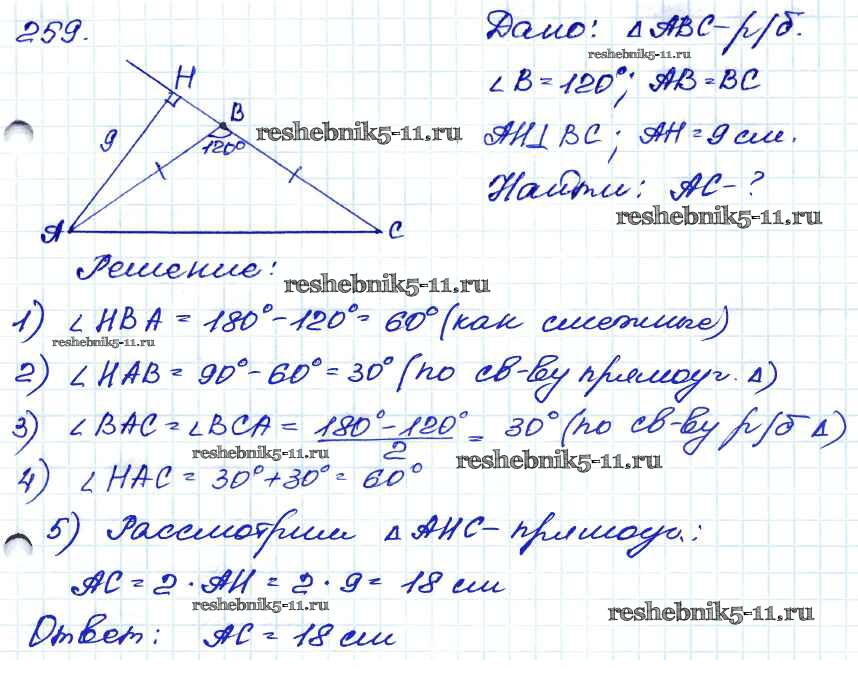 259.
Дано: △ABC - р/б.
reshebnik5-11.ru
∠B = 120°; AB = BC
AH⊥BC; AH = 9 см.
Найти: AC - ?
reshebnik5-11.ru
H
B
9
120°
reshebnik5-11.ru
A
C
Решение:
reshebnik5-11.ru
1) ∠HBA = 180° - 120° = 60° (как смежные)
reshebnik5-11.ru
2) ∠HAB = 90° - 60° = 30° (по св-ву прямоуг. △)
3) ∠BAC = ∠BCA = (180° - 120°)/2 = 30° (по св-ву р/б △)
reshebnik5-11.ru
reshebnik5-11.ru
4) ∠HAC = 30° + 30° = 60°
5) Рассмотрим △AHC - прямоуг.:
AC = 2 · AH = 2 · 9 = 18 см
reshebnik5-11.ru
reshebnik5-11.ru
Ответ: AC = 18 см